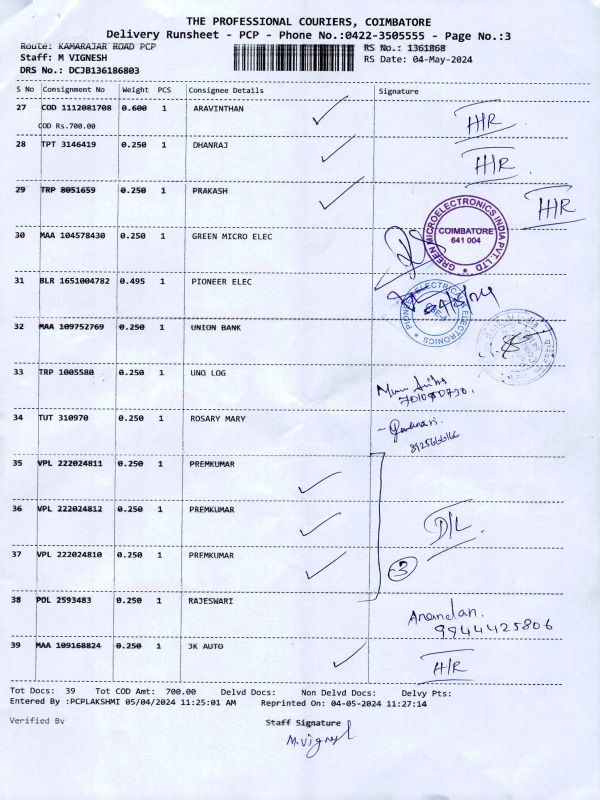 THE PROFESSIONAL COURIERS, COIMBATORE
Delivery Runsheet - PCP - Phone No.:0422-3505555 - Page No.:3
Route: KAMARAJAR ROAD PCP RS No.: 1361868
Staff: M VIGNESH RS Date: 04-May-2024
DRS No.: DCJB136186803
S No Consignment No Weight PCS Consignee Details Signature
27 COD 1112081708 0.600 1 ARAVINTHAN H/R
COD Rs.700.00
28 TPT 3146419 0.250 1 DHANRAJ H/R
29 TRP 8051659 0.250 1 PRAKASH H/R
30 MAA 104578430 0.250 1 GREEN MICRO ELEC
GREEN MICROELECTRONICS INDIA PVT. LTD
COIMBATORE
641 004
31 BLR 1651004782 0.495 1 PIONEER ELEC
32 MAA 109752769 0.250 1 UNION BANK
33 TRP 1005580 0.250 1 UNO LOG
34 TUT 310970 0.250 1 ROSARY MARY
35 VPL 222024811 0.250 1 PREMKUMAR
36 VPL 222024812 0.250 1 PREMKUMAR D/L
37 VPL 222024810 0.250 1 PREMKUMAR 3
38 POL 2593483 0.250 1 RAJESWARI Anandan.
9944425806
39 MAA 109168824 0.250 1 JK AUTO H/R
Tot Docs: 39 Tot COD Amt: 700.00 Delvd Docs: Non Delvd Docs: Delvy Pts:
Entered By :PCPLAKSHMI 05/04/2024 11:25:01 AM Reprinted On: 04-05-2024 11:27:14
Verified By Staff Signature
M.Vignesh